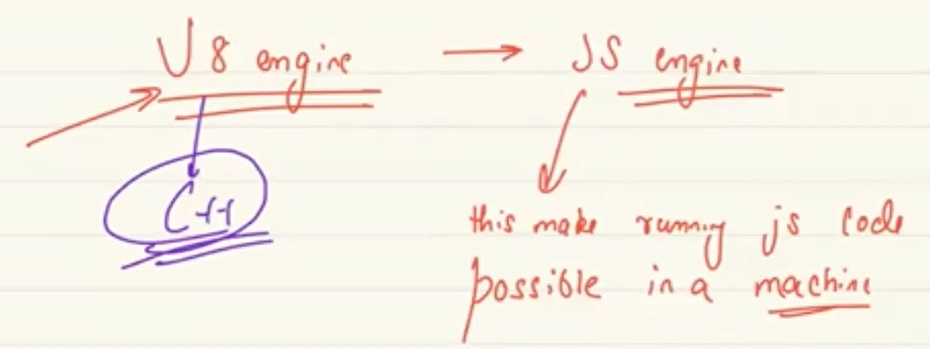 V8 engine → JS engine
C++
this make running js code
possible in a machine